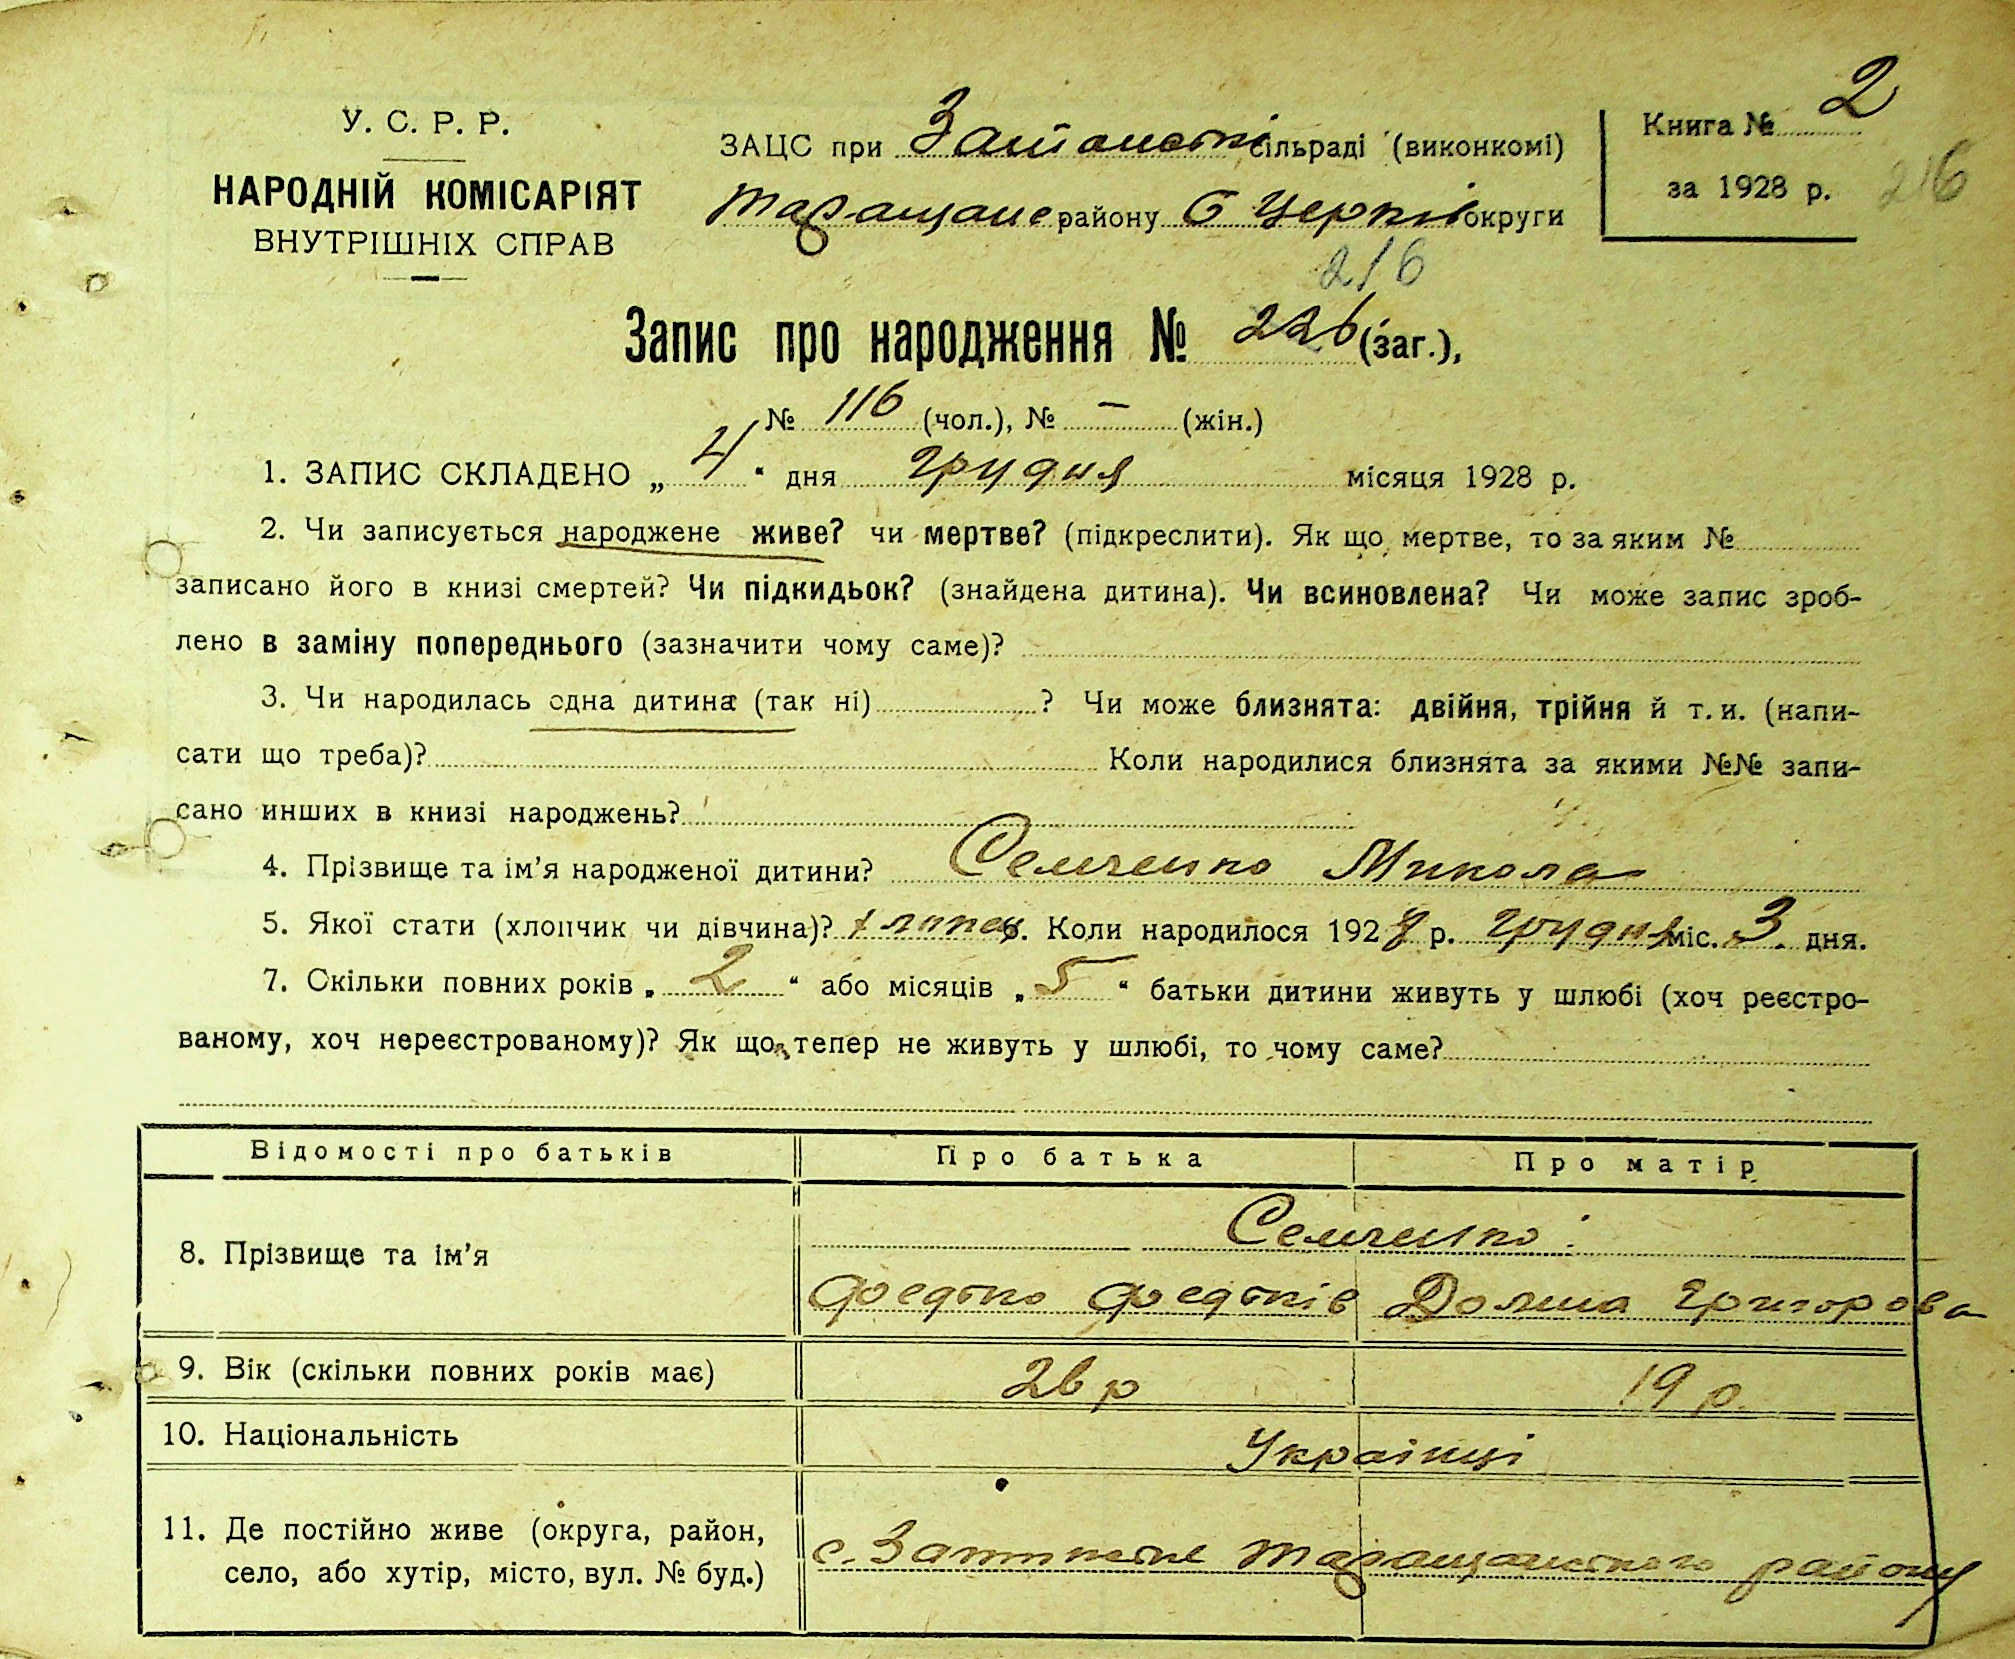 У. С. Р. Р.
НАРОДНІЙ КОМІСАРІЯТ
ВНУТРІШНІХ СПРАВ
ЗАЦС при сільраді (виконкомі)
Таращане району Б Церків округи
Книга № 2
за 1928 р. 216
216
Запис про народження № 226 (заг.),
№ 116 (чол.), № – (жін.)
1. ЗАПИС СКЛАДЕНО „ 4 “ дня грудня місяця 1928 р.
2. Чи записується народжене живе? чи мертве? (підкреслити). Як що мертве, то за яким №
записано його в книзі смертей? Чи підкидьок? (знайдена дитина). Чи всиновлена? Чи може запис зроб-
лено в заміну попереднього (зазначити чому саме)?
3. Чи народилась одна дитина (так ні) ? Чи може близнята: двійня, трійня й т. и. (напи-
сати що треба)? Коли народилися близнята за якими №№ запи-
сано инших в книзі народжень?
4. Прізвище та ім’я народженої дитини? Семченко Микола
5. Якої стати (хлопчик чи дівчина)? хлопец 6. Коли народилося 1928 р. грудня міс. 3 дня.
7. Скільки повних років „ 2 “ або місяців „ 5 “ батьки дитини живуть у шлюбі (хоч реєстро-
ваному, хоч нереєстрованому)? Як що тепер не живуть у шлюбі, то чому саме?
Відомості про батьків Про батька Про матір
8. Прізвище та ім’я Семченко
Федько Федьків Домна Григорова
9. Вік (скільки повних років має) 26 р 19 р.
10. Національність Українці
11. Де постійно живе (округа, район,
село, або хутір, місто, вул. № буд.)
с. Таращанского району